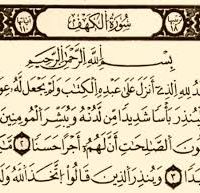 سُورَةُ الكَهْفِ
١٨
بِسْمِ ٱللَّهِ ٱلرَّحْمَٰنِ ٱلرَّحِيمِ
لِلَّهِ ٱلَّذِىٓ أَنزَلَ عَلَىٰ عَبْدِهِ ٱلْكِتَٰبَ وَلَمْ يَجْعَل لَّهُۥ
لِّيُنذِرَ بَأْسًا شَدِيدًا مِّن لَّدُنْهُ وَيُبَشِّرَ ٱلْمُؤْمِنِينَ
ٱلصَّٰلِحَٰتِ أَنَّ لَهُمْ أَجْرًا حَسَنًا ٢
٣ وَيُنذِرَ ٱلَّذِينَ قَالُوا۟ ٱتَّخَذَ ٱللَّهُ